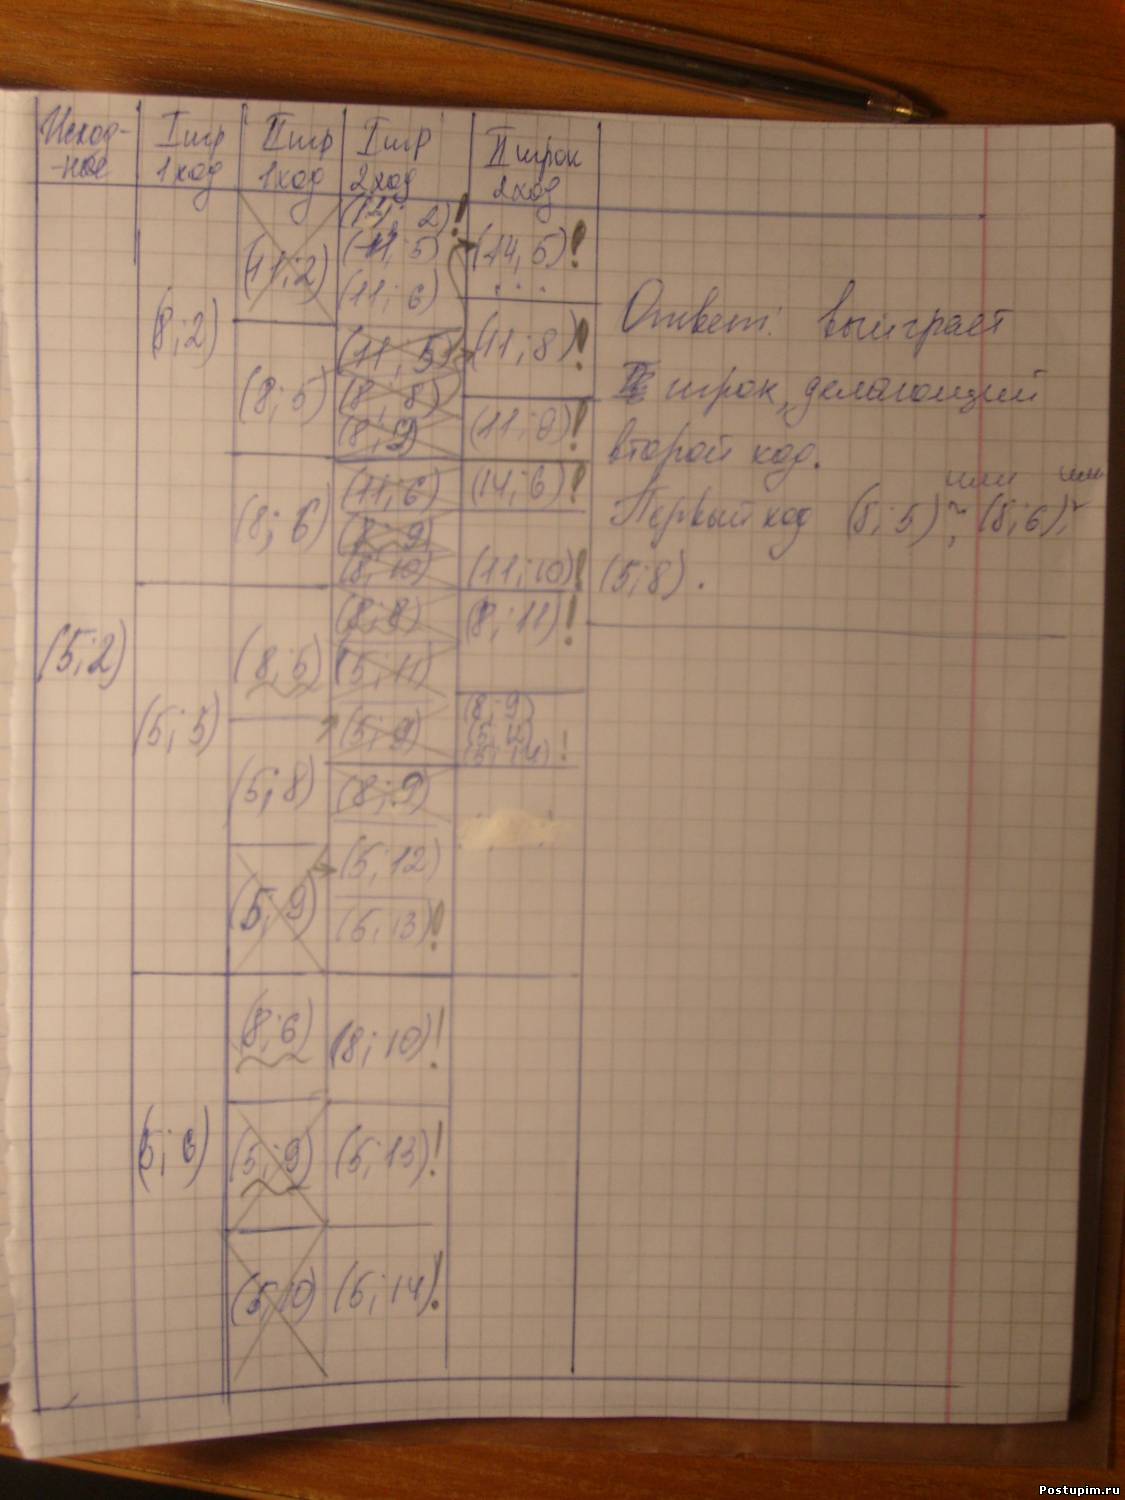 Исход- I игр II игр I игр II игрок
-ное 1 ход 1 ход 2 ход 2 ход
(5; 2)
(8; 2)
(11; 2)
(11; 5)
(11; 6)
(14, 5)!
...
(8; 5)
(11, 5)
(8; 8)
(8; 9)
(11; 8)!
(11; 9)!
(8; 6)
(11; 6)
(8; 9)
(8; 10)
(14; 6)!
(11; 10)!
(5; 5)
(8; 5)
(8; 8)
(5; 11)
(5; 9)
(8; 11)!
(8; 9)
(5; 8)
(8; 9)
(5; 12)
(5; 13)!
(5, 9)
(5; 6)
(8; 6)
(8; 10)!
(5; 9)
(5; 13)!
(5; 10)
(5; 14)!
Ответ: выиграет
II игрок, делающий
второй ход.
Первый ход (5; 5) или (5; 6), или
(5; 8).
Postupim.ru